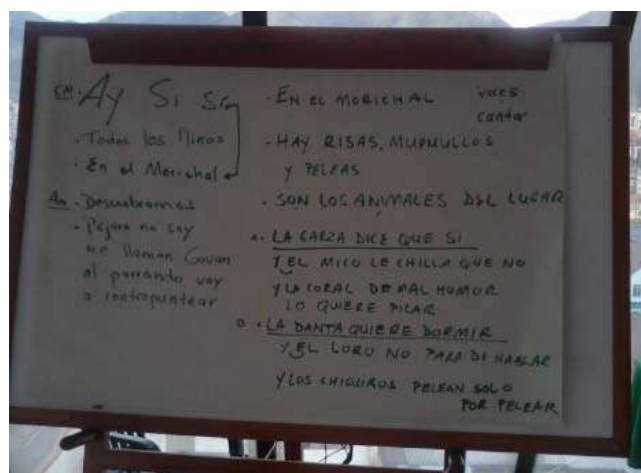 CM. Ay Si Si
. Todos los Niños
. En el Morichal
Am. Descubramos
. Pájaro no soy
me llaman Gavan
al parrando voy
a contrapuntear
. EN EL MORICHAL
voces
cantar
. HAY RISAS, MURMULLOS
Y PELEAS
. SON LOS ANIMALES DEL LUGAR
A. LA GARZA DICE QUE SI
Y EL MICO LE CHILLA QUE NO
Y LA CORAL DE MAL HUMOR
LO QUIERE PICAR
B. LA DANTA QUIERE DORMIR
Y EL LORO NO PARA DE HABLAR
Y LOS CHIGUIROS PELEAN SOLO
POR PELEAR